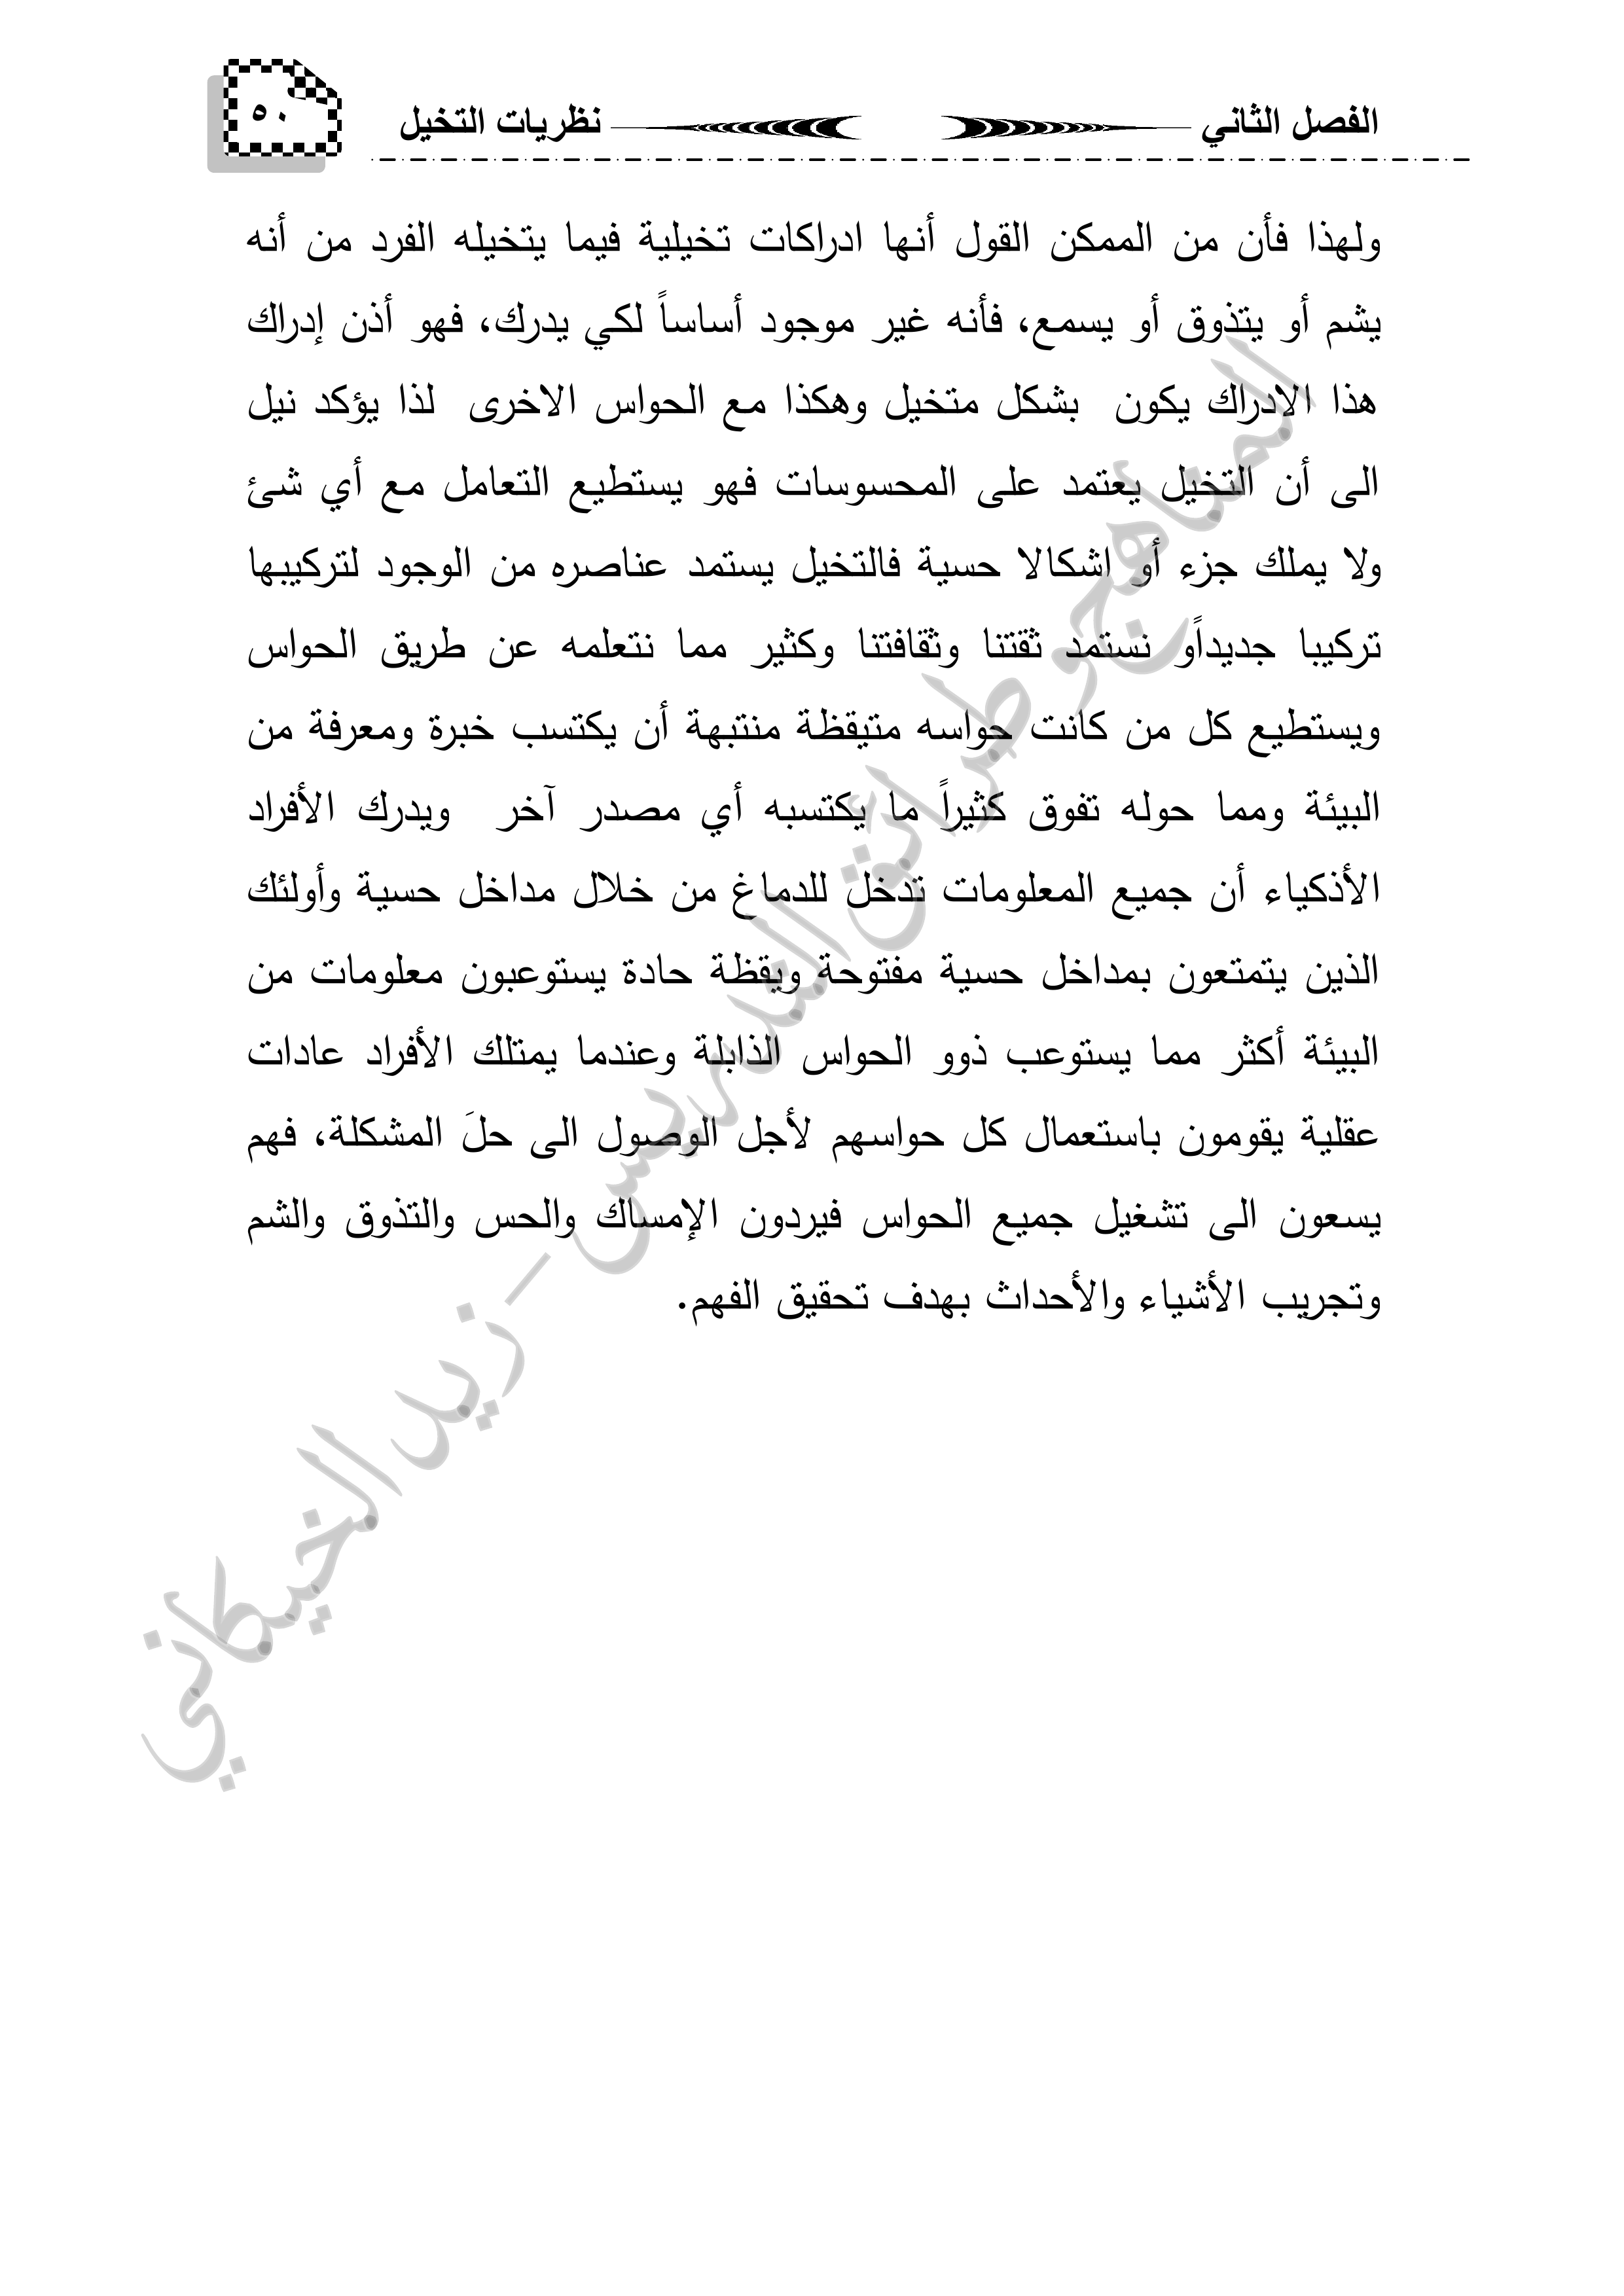 الفصل الثاني نظريات التخيل ٥٠
ولهذا فأن من الممكن القول أنها ادراكات تخيلية فيما يتخيله الفرد من أنه
يشم أو يتذوق أو يسمع، فأنه غير موجود أساساً لكي يدرك، فهو أذن إدراك
هذا الادراك يكون بشكل متخيل وهكذا مع الحواس الاخرى لذا يؤكد نيل
الى أن التخيل يعتمد على المحسوسات فهو يستطيع التعامل مع أي شئ
ولا يملك جزء أو اشكالا حسية فالتخيل يستمد عناصره من الوجود لتركيبها
تركيبا جديداًو نستمد ثقتنا وثقافتنا وكثير مما نتعلمه عن طريق الحواس
ويستطيع كل من كانت حواسه متيقظة منتبهة أن يكتسب خبرة ومعرفة من
البيئة ومما حوله تفوق كثيراً ما يكتسبه أي مصدر آخر ويدرك الأفراد
الأذكياء أن جميع المعلومات تدخل للدماغ من خلال مداخل حسية وأولئك
الذين يتمتعون بمداخل حسية مفتوحة ويقظة حادة يستوعبون معلومات من
البيئة أكثر مما يستوعب ذوو الحواس الذابلة وعندما يمتلك الأفراد عادات
عقلية يقومون باستعمال كل حواسهم لأجل الوصول الى حلَ المشكلة، فهم
يسعون الى تشغيل جميع الحواس فيردون الإمساك والحس والتذوق والشم
وتجريب الأشياء والأحداث بهدف تحقيق الفهم.
المناهج وطرائق التدريس – زيد الخيكاني